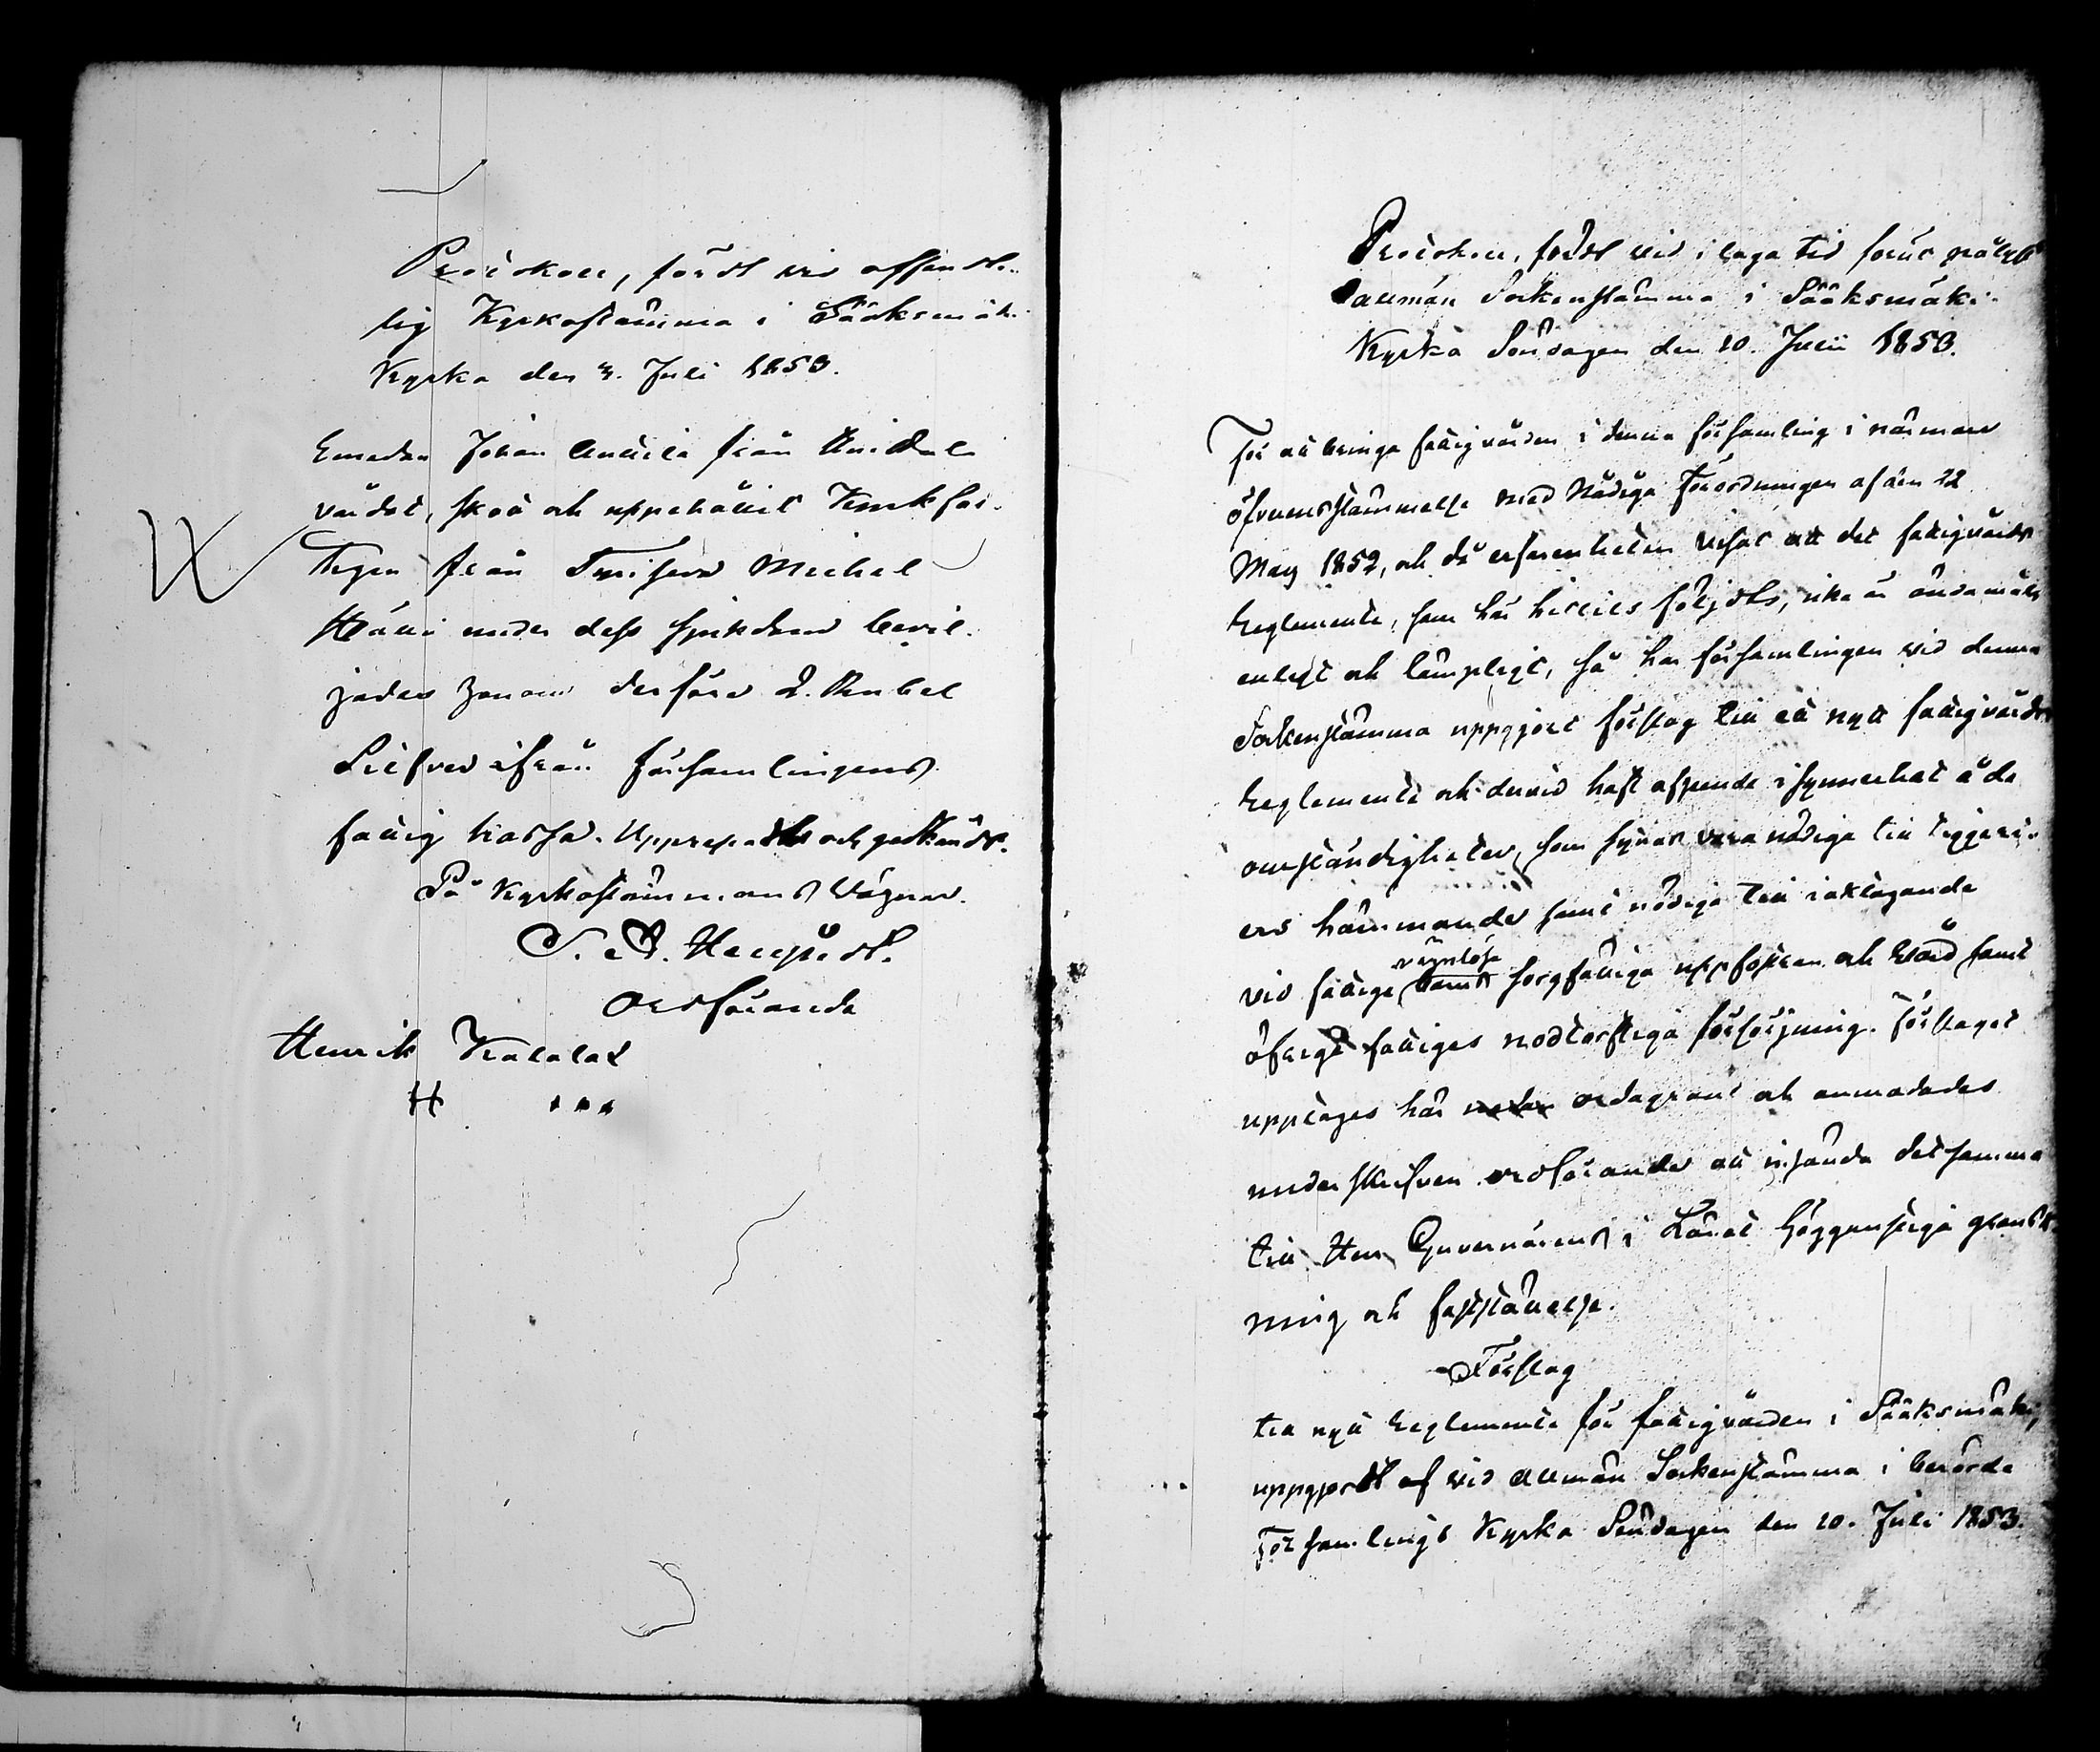 Protokoll, fördt vid offendt-
lig Kyrkostämma i Sääksmäki
Kyrka den 3. Juli 1853.
Emedan Johan Anttila från
vårdat, skött och uppehållit
från Michel
Hälli under dess sjukdom bevil-
jades honom derföre 2. Rubel
Silfver ifrån församlingens
fattig kassa. Upprepadt och godkändt.
På Kyrkostämmans Vägnar.
Ordförande
Henrik
H
Protokoll, fördt vid i laga tid förut pålyst
allmän Sockenstämma i Sääksmäki
Kyrka Söndagen den 10. Julii 1853.
För att bringa fattigvården i denna församling i närmare
öfverensstämmelse med Nådiga Förordningen af den 22
May 1852, och då erfarenheten visat att det fattigvårds
Reglemente, som här hittils följdts, icke är ändamåls
enligt och lämpligt, så har församlingen vid denna
Sockenstämma uppgjort förslag till ett nytt fattigvårds
Reglemente och dervid haft afseende i synnerhet å de
omständigheter, som synas vara nödiga till tiggeri-
ers hämmande samt nödiga till iakttagande
vid fattige värnlösa barns sorgfälliga uppfostran och Vård samt
öfrige fattiges nödtorftiga försörjning. Förslaget
upptages här nedan ordagrant och anmodades
underskrifven ordförande att insända detsamma
till Herr Guvernörens i Länet höggunstiga gransk-
ning och fastställelse.
Förslag
till nytt Reglemente för fattigvården i Sääksmäki,
uppgjordt af vid allmän Sockenstämma i berörde
Församlings Kyrka Söndagen den 10. Juli 1853.